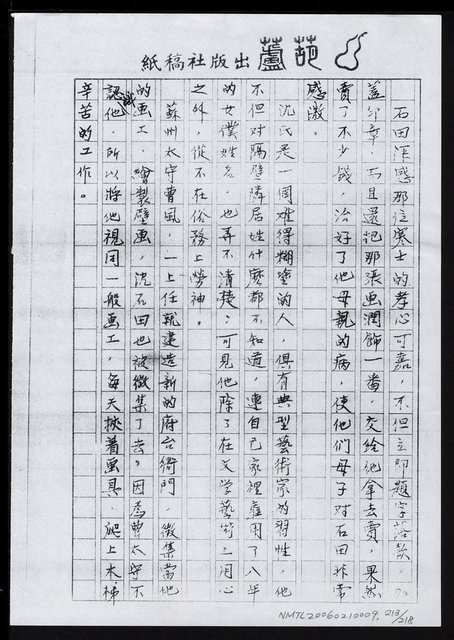 紙稿社版出蘆葫
石田深感那位寒士的孝心可嘉，不但立即題字落款，加
蓋印章，而且還把那張画潤飾一番，交給他拿去賣，果然
賣了不少錢，治好了他母親的病，使他們母子對石田非常
感激。
沈氏是一個难得糊塗的人，俱有典型藝術家的習性，他
不但对隔壁隣居姓什麼都不知道，連自己家裡雇用了八年
的女僕姓名，也弄不清楚；可見他除了在文學藝術上用心
之外，從不在俗務上勞神。
蘇州太守曹風，一上任就建造新的府台衙門，徵集當地
的画工，繪製壁画，沈石田也被徵集了去。因為曹太守不
認識他，所以將他視同一般画工，每天挾着画具，爬上木梯
辛苦的工作。
NMTL20060210009, 213/218